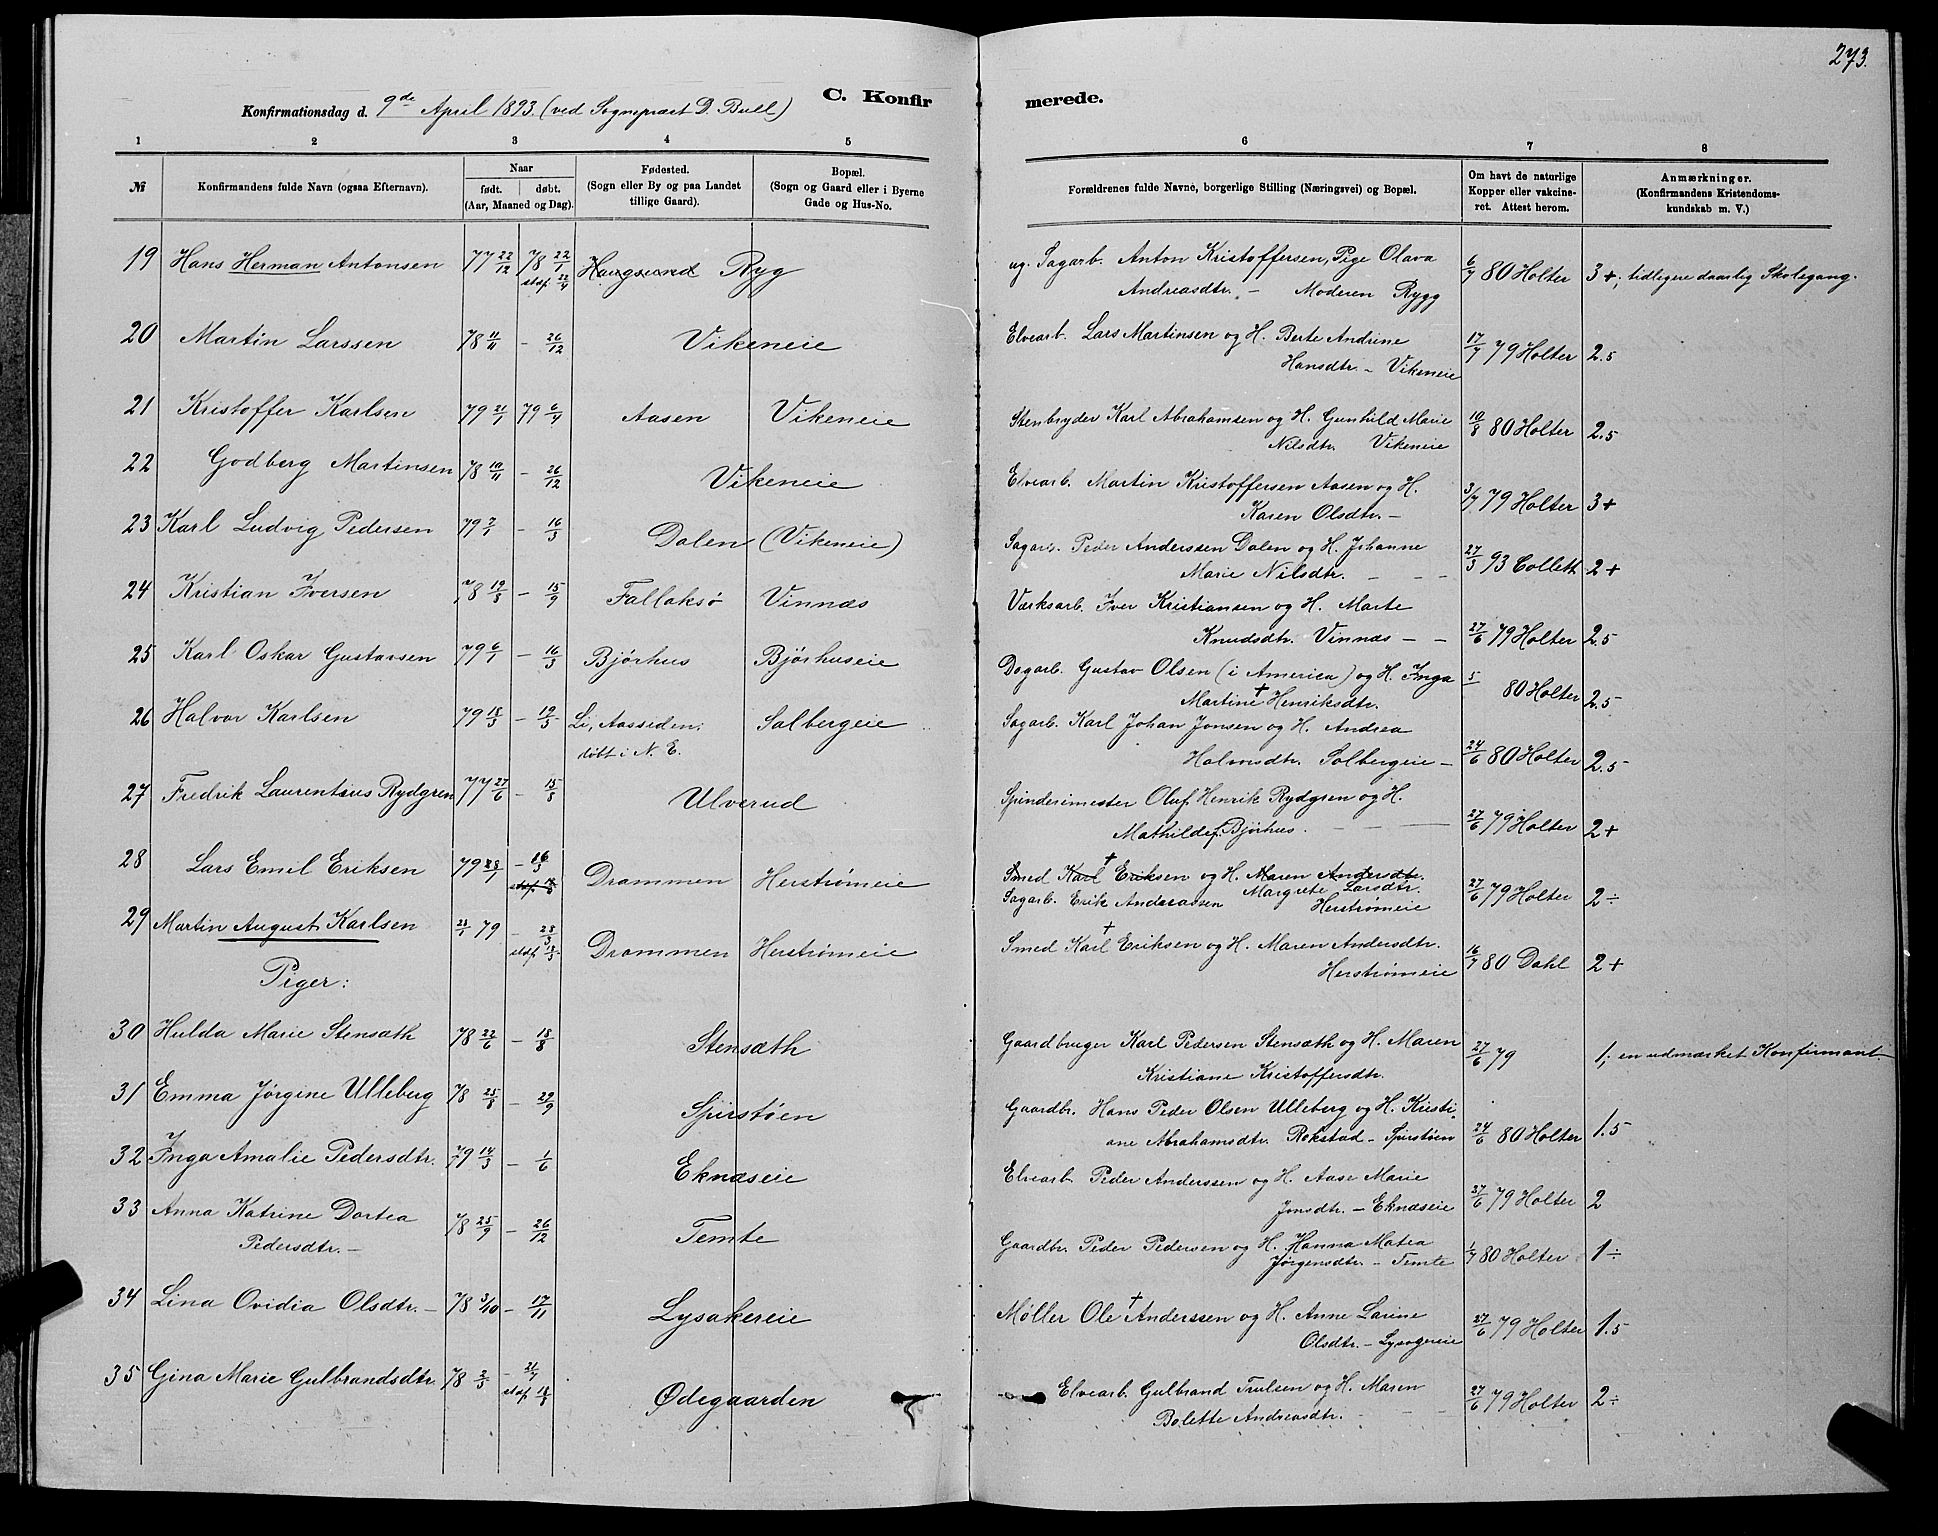 273.
Konfirmationsdag d. 9de April 1893. (ved Sognepræst D. Bull)
C. Konfirmerede.
1 2 3 4 5 6 7 8
№
Konfirmandens fulde Navn (ogsaa Efternavn).
Naar
født. døbt.
(Aar, Maaned og Dag).
Fødested.
(Sogn eller By og paa Landet
tillige Gaard).
Bopæl.
(Sogn og Gaard eller i Byerne
Gade og Hus-No.
Forældrenes fulde Navne, borgerlige Stilling (Næringsvei) og Bopæl.
Om havt de naturlige
Kopper eller vakcine-
ret. Attest herom.
Anmærkninger.
(Konfirmandens Kristendoms-
kundskab m. V.)
19 Hans Herman Antonsen 77 22/12 78 22/1 Haugsund Ryg ug. Sagarb. Anton Kristoffersen, Pige Olava
stdf 22/4 Andreasdtr. – Moderen Rygg 6/7 80 Holter 3+; tidligere daarlig Skolegang.
20 Martin Larssen 78 11/11 – 26/12 Vikeneie Elvearb. Lars Martinsen og H. Berte Andrine
Hansdtr. – Vikeneie 17/7 79 Holter 2.5
21 Kristoffer Karlsen 79 21/1 79 6/4 Aasen Vikeneie Stenbryder Karl Abrahamsen og H. Gunhild Marie
Nilsdtr. Vikeneie 10/8 80 Holter 2.5
22 Godberg Martinsen 78 10/11 – 26/12 Vikeneie Elvearb. Martin Kristoffersen Aasen og H.
Karen Olsdtr. – 3/7 79 Holter 3+
23 Karl Ludvig Pedersen 79 7/1 – 16/3 Dalen (Vikeneie) Sagarb. Peder Anderssen Dalen og H. Johanne
Marie Nilsdtr. – – – 27/3 93 Collett 2+
24 Kristian Iversen 78 19/3 – 15/9 Fallaksø Vinnæs Værksarb. Iver Kristiansen og H. Marte
Knudsdtr. Vinnæs – – 27/6 79 Holter 2.5
25 Karl Oskar Gustavsen 79 6/1 – 16/3 Bjørhus Bjørhuseie Dagarb. Gustav Olsen (i America) og H. Inga
Martine † Henriksdtr. 5/ 80 Holter 2.5
26 Halvor Karlsen 79 15/3 – 19/5 Li, Aassiden; Solbergeie Sagarb. Karl Johan Jonsen og H. Andrea
døbt i N. E. Halvorsdtr. Solbergeie – 24/6 80 Holter 2.5
27 Fredrik Laurentius Rydgren 77 27/6 – 15/8 Ulverud Spinderimester Oluf Henrik Rydgren og H.
Mathilde f. Bjørhus. – – – 27/6 79 Holter 2+
28 Lars Emil Eriksen 79 28/1 – 16/3 Drammen Herstrømeie Smed Karl † Eriksen og H. Maren Andersdtr.
Sagarb. Erik Anderssen Margrete Larsdtr.
Herstrømeie 27/6 79 Holter 2÷
29 Martin August Karlsen 22/1 79 – 23/3 Drammen Herstrømeie Smed Karl † Eriksen og H. Maren Andersdtr.
Herstrømeie 16/7 80 Dahl 2+
Piger:
30 Hulda Marie Stensæth 78 22/6 – 18/8 Stensæth Gaardbruger Karl Pedersen Stensæth og H. Maren
Kristiane Kristoffersdtr. 27/6 79 1; en udmærket Konfirmant
31 Emma Jørgine Ulleberg 78 25/8 – 29/9 Spirstøen Gaardbr. Hans Peder Olsen Ulleberg og H. Kristi-
ane Abrahamsdtr. Rokstad – Spirstøen 24/6 80 Holter 1.5
32 Inga Amalie Pedersdtr. 79 14/3 – 1/6 Eknæseie Elvearb. Peder Anderssen og H. Aase Marie
Jonsdtr. – Eknæseie 27/6 79 Holter 2
33 Anna Katrine Dortea 78 25/9 – 26/12 Temte Gaardbr. Peder Pedersen og H. Hanna Matea
Pedersdtr. – Jørgensdtr. – Temte 1/7 80 Holter 1÷
34 Lina Ovidia Olsdtr. – 78 3/10 – 17/11 Lysakereie Møller Ole † Anderssen og H. Anne Larine
Olsdtr. – Lysogereie 27/6 79 Holter 1.5
35 Gina Marie Gulbrandsdtr. 78 2/5 – 21/7 Ødegaarden Elvearb. Gulbrand Trulsen og H. Maren
stdf 18/8 Bolette Andreasdtr. – – – 27/6 79 Holter 2÷